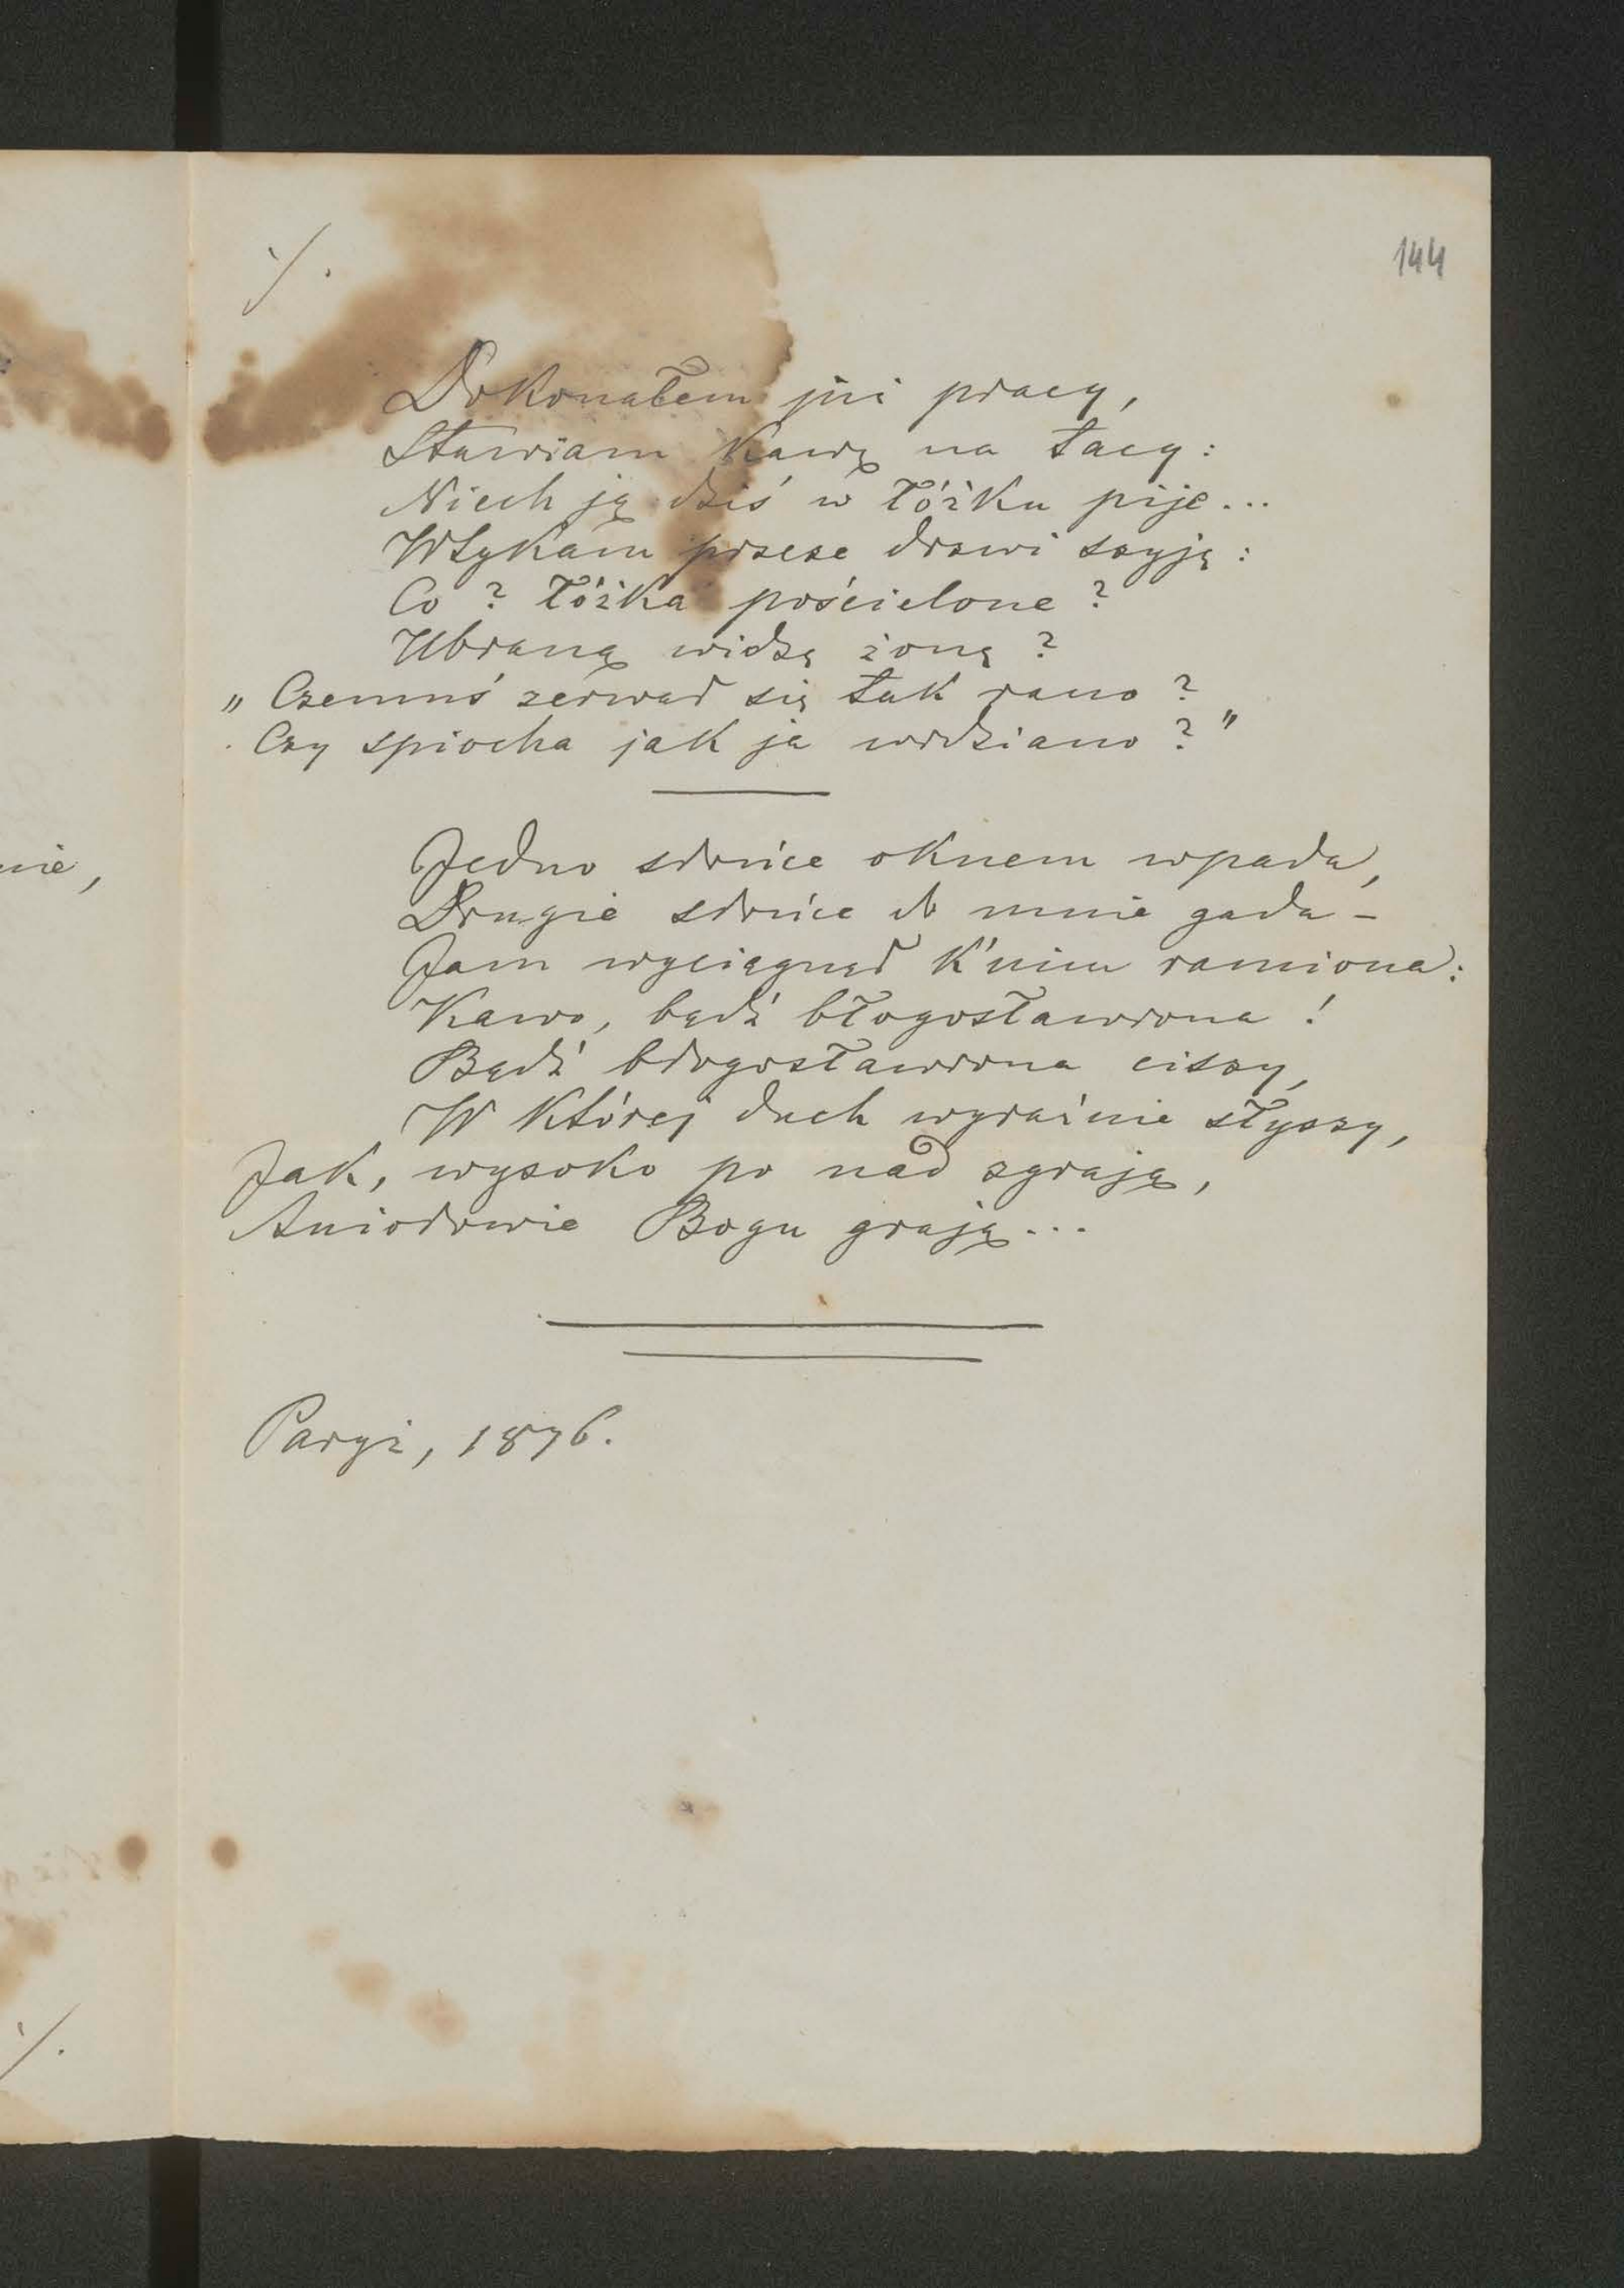 144
./.
Dokonałem już pracy,
Stawiam kawę na tacy:
Niech ją dziś w łóżku pije...
Wtykam przeze drzwi szyję:
Co? łóżka pościelone?
Ubraną widzę żonę?
„Czemuś zerwał się tak rano?
Czy spiocha jak ja widziano?"
Jedno słońce oknem wpada,
Drugie słońce do mnie gada –
Jam wyciągnął k'nim ramiona:
Kawo, bądź błogosławiona!
Bądź błogosławiona ciszy,
W której duch wyraźnie słyszy,
Jak, wysoko po nad zgrają,
Aniołowie Bogu grają...
Paryż, 1876.
nie,
./.